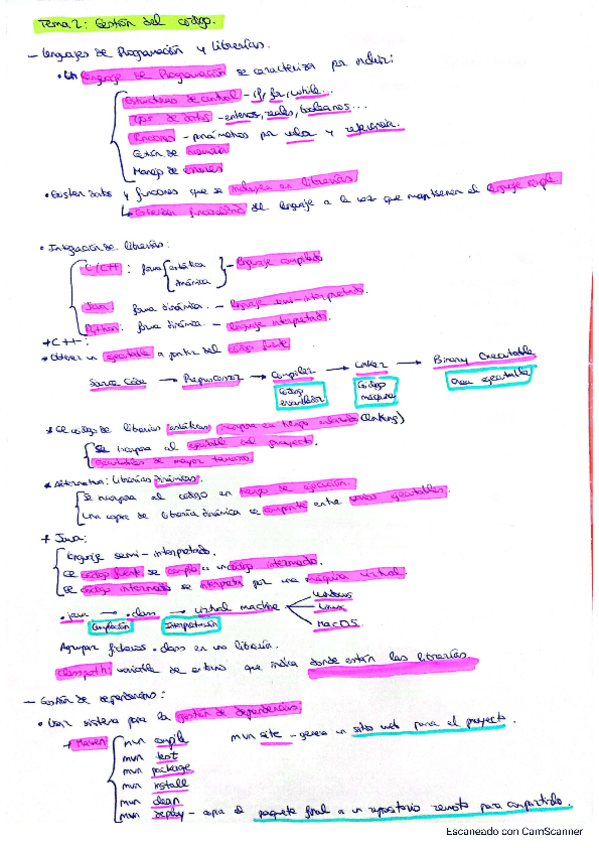 Tema 2: Gestión del código.
- Lenguajes de Programación y Librerías.
• Un lenguaje de Programación se caracteriza por incluir:
Estructuras de control - if, for, while...
Tipos de datos - enteros, reales, booleanos...
Funciones - parámetros por valor y referencia.
Gestión de memoria
Manejo de errores
• Existen datos y funciones que se incluyen en librerías
↳ Extienden funcionalidad del lenguaje a la vez que mantienen el lenguaje simple.
• Integración de librerías:
C/C++: forma estática dinámica } - lenguaje compilado
Java: forma dinámica. - lenguaje semi-interpretado.
Python: forma dinámica. - lenguaje interpretado.
* C++:
• Obtener un ejecutable a partir del código fuente
Source Code → Preprocessor → Compiler → Linker → Binary Executable
Código ensamblador
Código máquina
Crea ejecutable
* El código de librerías estáticas incorpora en tiempo enlazado (linking)
Se incorpora al ejecutable del proyecto.
Ejecutables de mayor tamaño.
* Alternativa: librerías dinámicas.
Se incorpora al código en tiempo de ejecución.
Una copia de librería dinámica se comparte entre varios ejecutables.
* Java:
Lenguaje semi-interpretado.
El código fuente se compila a un código intermedio.
El código intermedio se interpreta por una máquina virtual.
.java → .class → virtual machine
Windows
Linux
MacOS.
Compilación
Interpretación
Agrupar ficheros .class en una librería.
Classpath: variable de entorno que indica donde están las librerías.
- Gestión de dependencias:
• Usar sistema para la gestión de dependencias
* Maven
mvn compile
mvn site - genera un sitio web para el proyecto.
mvn test
mvn package
mvn install
mvn clean
mvn deploy - copia el paquete final a un repositorio remoto para compartirlo.
Escaneado con CamScanner